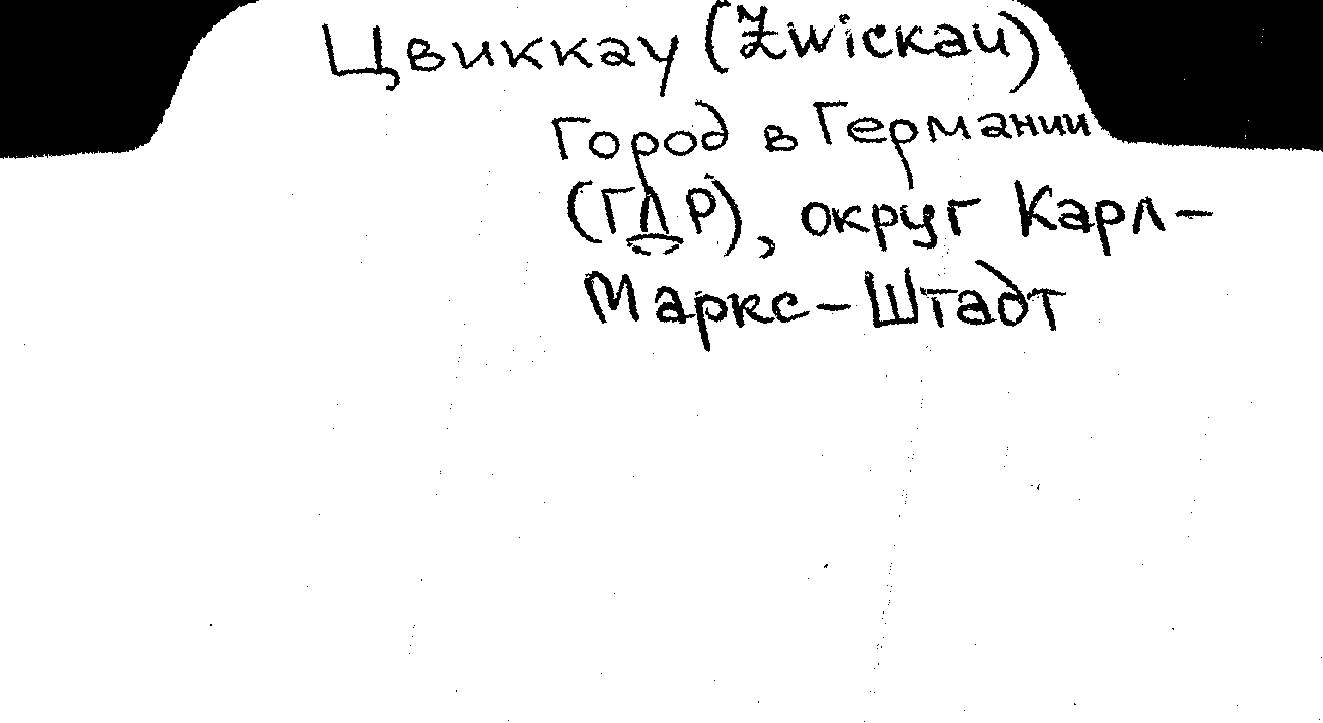 Цвиккау (Zwickau)
Город в Германии
(ГДР), округ Карл-
Маркс-Штадт